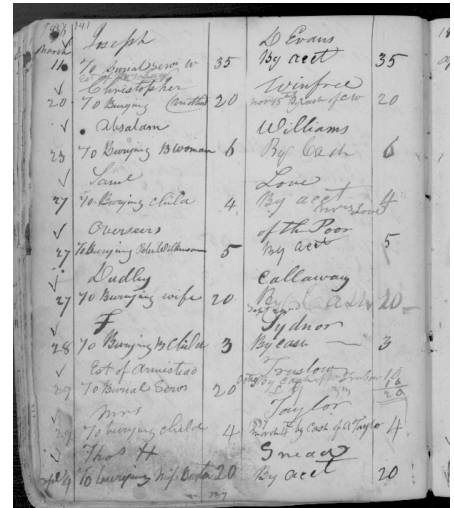 1841
Joseph D Evans
March
11 To burial serv w 35 By acct 35
Christopher Winfree
20 To Burying Mother 20 By Cash of CW 20
Absalam Williams
23 To Burying B Woman 6 By Cash 6
Saml Love
27 To Burying child 4 By acct 4
Overseers of the Poor
27 To Burying Wilkinson 5 By acct 5
Dudley Callaway
27 To Burying wife 20 By Cash 20
F Sydnor
28 To Burying B Child 3 By cash 3
Est of Armistead Truslow
29 To Burial Servs 20 By Cash 10
10
20
Mrs Taylor
29 To burying child 4 By Cash of A Taylor 4
Thos H Snead
To burying Miss 20 By acct 20